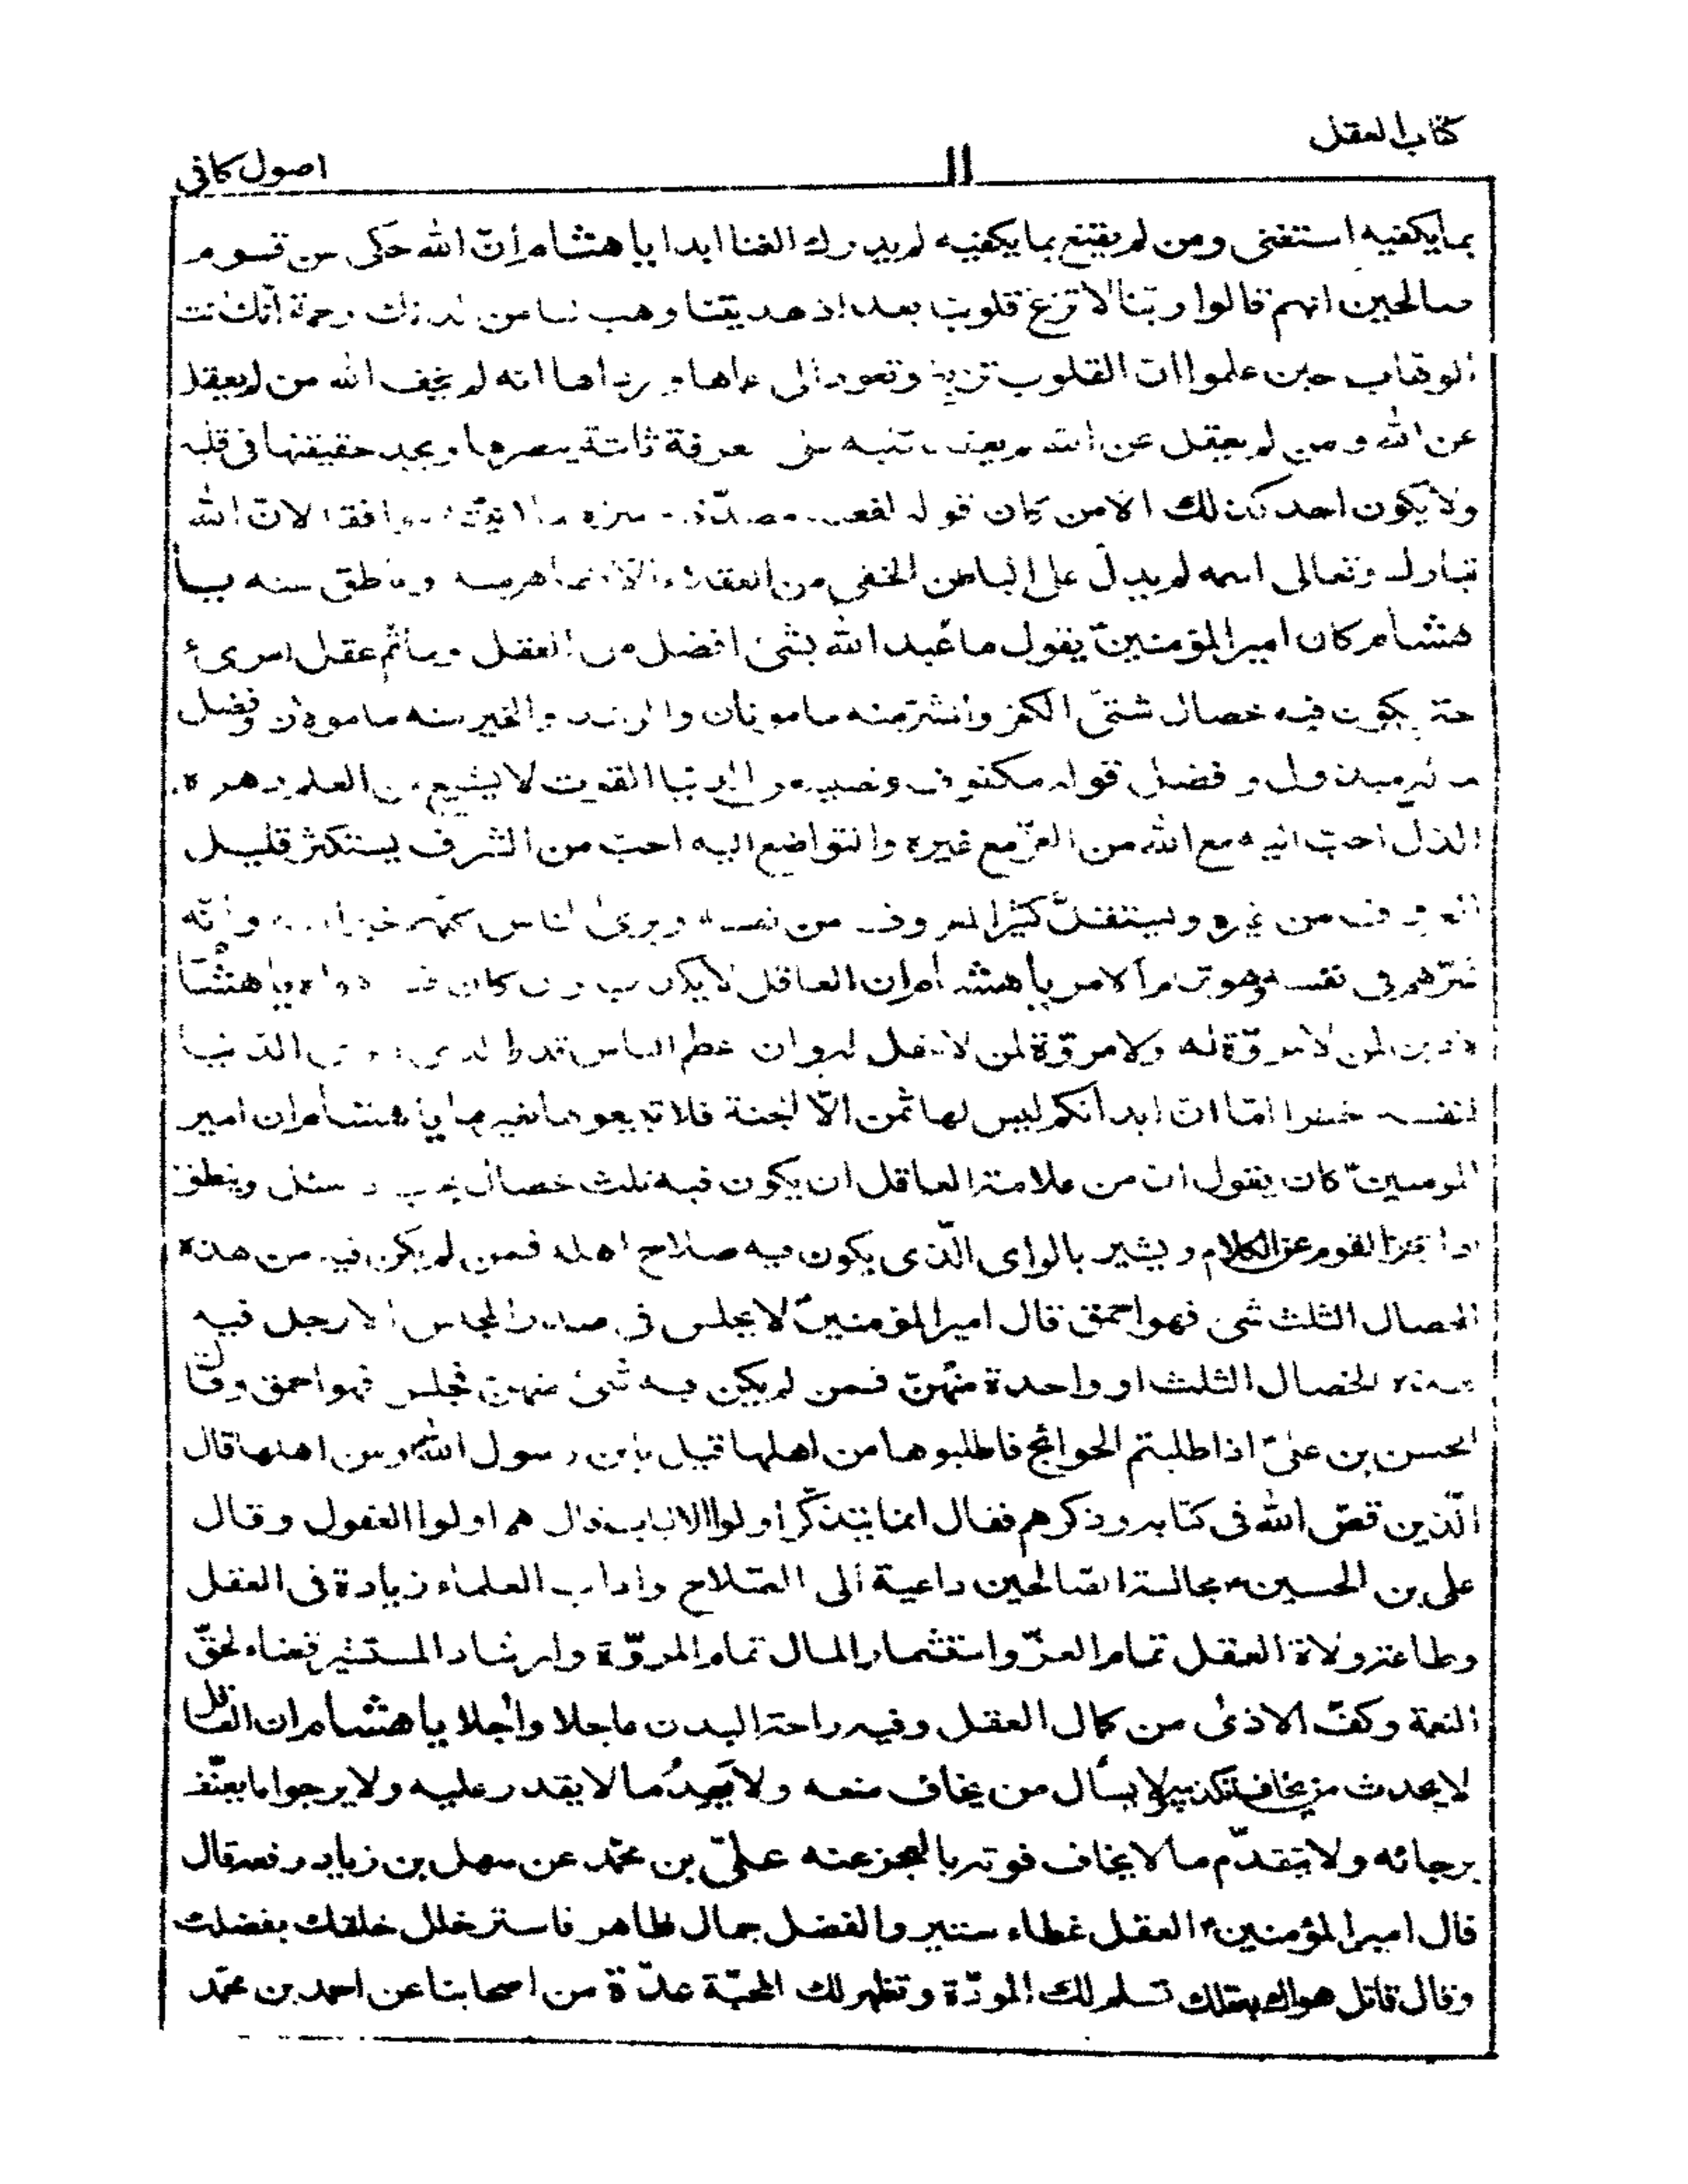 كتاب العقل
١١
اصول كافى
بما يكفيه استغنى ومن لم يقنع بما يكفيه لم يدرك الغنا ابدا يا هشام إنّ الله حكى عن قوم
صالحين انهم قالوا ربّنا لا تزغ قلوبنا بعد اذ هديتنا وهب لنا من لدنك رحمة انّك انت
الوهّاب حين علموا انّ القلوب تزيغ وتعود الى عماها ورداها انه لم يخف الله من لم يعقل
عن الله ومن لم يعقل عن الله لم يعقد قلبه على معرفة ثابتة يبصرها ويجد حقيقتها فى قلبه
ولا يكون احد كذلك الا من كان قوله لفعله مصدّقا وسره لعلانيته موافقا لانّ الله
تبارك وتعالى اسمه لم يدلّ على الباطن الخفى من العقل الا بظاهر منه وناطق عنه يا
هشام كان امير المؤمنينّ يقول ما عُبد الله بشئ افضل من العقل وما تمّ عقل امرىء
حتى يكون فيه خصال شتّى الكفر والشرّ منه مامونان والرشد والخير منه مامولان وفضل
ماله مبذول و فضل قوله مكفوف ونصيبه من الدنيا القوت لا يشبع من العلم دهره
الذلّ احبّ اليه مع الله من العزّ مع غيره والتواضع اليه احبّ من الشرف يستكثر قليل
المعروف من غيره ويستقلّ كثير المعروف من نفسه ويرى الناس كلّهم خيرا منه وانّه
شرّهم فى نفسه وهو تمام الامر يا هشام ان العاقل لا يكذب وان كان فيه هواه يا هشا
م لا دين لمن لا مروّة له ولا مروّة لمن لا عقل له وان اعظم الناس قدرا الذى لا يرى الدنيا
لنفسه خطرا امّا انّ ابدانكم ليس لها ثمن الّا الجنة فلا تبيعوها بغيرها يا هشام ان امير
المومنينّ كان يقول ان من علامة العاقل ان يكون فيه ثلث خصال يجيب اذا سئل وينطق
اذا عجز القوم عن الكلام ويشير بالراى الّذى يكون فيه صلاح اهله فمن لم يكن فيه من هذه
الخصال الثلث شئ فهو احمق قال امير المؤمنينّ لا يجلس فى صدر المجلس الا رجل فيه
هذه الخصال الثلث او واحدة منهنّ فمن لم يكن فيه شئ منهن فجلس فهو احمق وقال
الحسن بن علىّ اذا طلبتم الحوائج فاطلبوها من اهلها قيل يابن رسول الله ومن اهلها قال
الّذين قصّ الله فى كتابه وذكرهم فقال انما يتذكّر اولوا الالباب قال هم اولوا العقول وقال
على بن الحسينؑ مجالسة الصّالحين داعية الى الصّلاح واداب العلماء زيادة فى العقل
وطاعة ولاة العقل تمام العزّ واستثمار المال تمام المروّة وارشاد المستشير قضاء لحقّ
النعمة وكفّ الاذى من كمال العقل وفيه راحة البدن عاجلا واٰجلا يا هشام ان العاقل
لا يحدث من يخاف تكذيبه ولا يسأل من يخاف منعه ولا يَعِدُ ما لا يقدر عليه ولا يرجوا ما يعنّف
برجائه ولا يتقدّم ما لا يخاف فوته بالعجز عنه علىّ بن محمّد عن سهل بن زياد رفعه قال
قال امير المؤمنينؑ العقل غطاء ستير والفضل جمال ظاهر فاستر خلل خلقك بفضلك
وقال قاتل هواك بعقلك تسلم لك المودّة وتظهر لك المحبّة عدّة من اصحابنا عن احمد بن محمّد